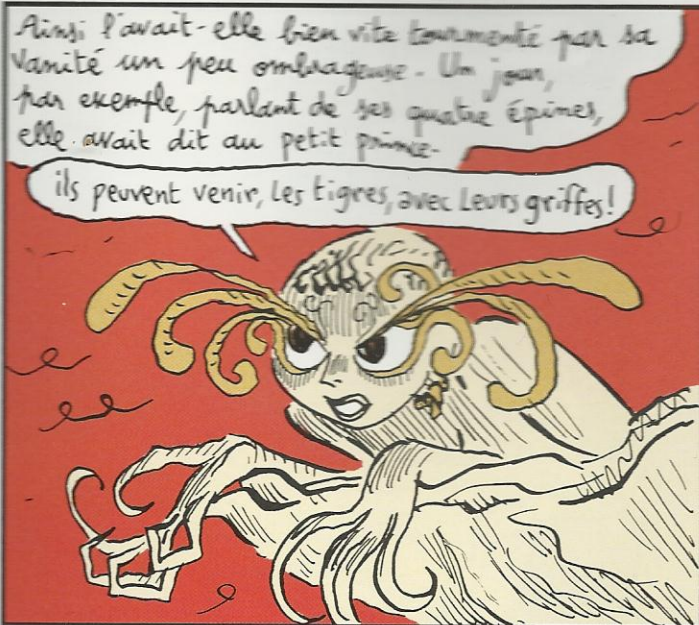 Ainsi l'avait-elle bien vite tourmenté par sa
vanité un peu ombrageuse. Un jour,
par exemple, parlant de ses quatre épines,
elle avait dit au petit prince.
ils peuvent venir, les tigres, avec leurs griffes!